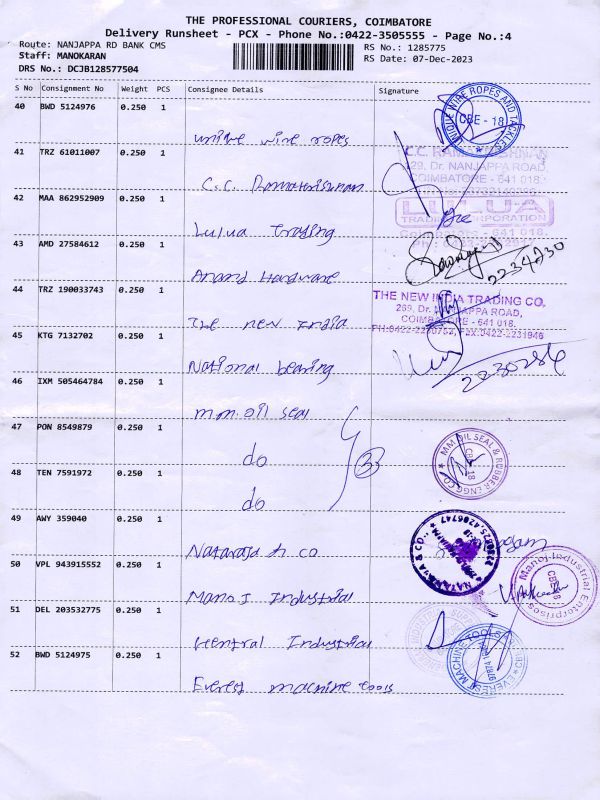 THE PROFESSIONAL COURIERS, COIMBATORE
Delivery Runsheet - PCX - Phone No.:0422-3505555 - Page No.:4
Route: NANJAPPA RD BANK CMS
RS No.: 1285775
Staff: MANOKARAN
RS Date: 07-Dec-2023
DRS No.: DCJB128577504
S No Consignment No Weight PCS Consignee Details Signature
40 BWD 5124976 0.250 1
unique wire ropes
UNIQUE WIRE ROPES AND TACKLES
CBE - 18
41 TRZ 61011007 0.250 1
C.C. Ramakrishnan
C.C. RAMAKRISHNAN
129, Dr. NANJAPPA ROAD,
COIMBATORE - 641 018.
42 MAA 862952909 0.250 1
Lulua Trading
LULUA
TRADING CORPORATION
641 018.
43 AMD 27584612 0.250 1
Anand Hardware
2234230
44 TRZ 190033743 0.250 1
The new India
THE NEW INDIA TRADING CO.
269, Dr. NANJAPPA ROAD,
COIMBATORE - 641 018.
PH:0422-2230753, Fax:0422-2231946
45 KTG 7132702 0.250 1
National bearing
2230286
46 IXM 505464784 0.250 1
mm oil seal
47 PON 8549879 0.250 1
do
3
MM OIL SEAL & RUBBER ENGG CO
CBE - 18
48 TEN 7591972 0.250 1
do
49 AWY 359040 0.250 1
Nataraja & co
NATARAJA & CO.,
50 VPL 943915552 0.250 1
Manoj Industrial
Manoj Industrial Enterprises
CBE - 18
51 DEL 203532775 0.250 1
Central Industrial
52 BWD 5124975 0.250 1
Everest machine tools
EVEREST MACHINE TOOLS